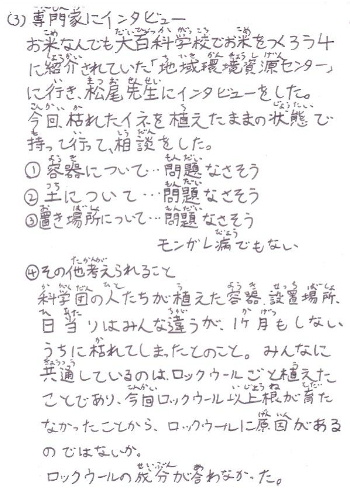 (3) 専門家にインタビュー
お米なんでも大百科学校でお米をつくろう4
に紹介されていた「地域環境資源センター」
に行き、松尾先生にインタビューをした。
今回、枯れたイネを植えたままの状態で
持って行って、相談をした。
① 容器について…問題なさそう
② 土について…問題なさそう
③ 置き場所について…問題なさそう
モンガレ病でもない
④その他考えられること
科学団の人たちが植えた容器、設置場所、
日当りはみんな違うが、1ヶ月もしない
うちに枯れてしまったとのこと。みんなに
共通しているのは、ロックウールごと植えた
ことであり、今回ロックウール以上根が育た
なかったことから、ロックウールに原因がある
のではないか。
ロックウールの成分が合わなかった。